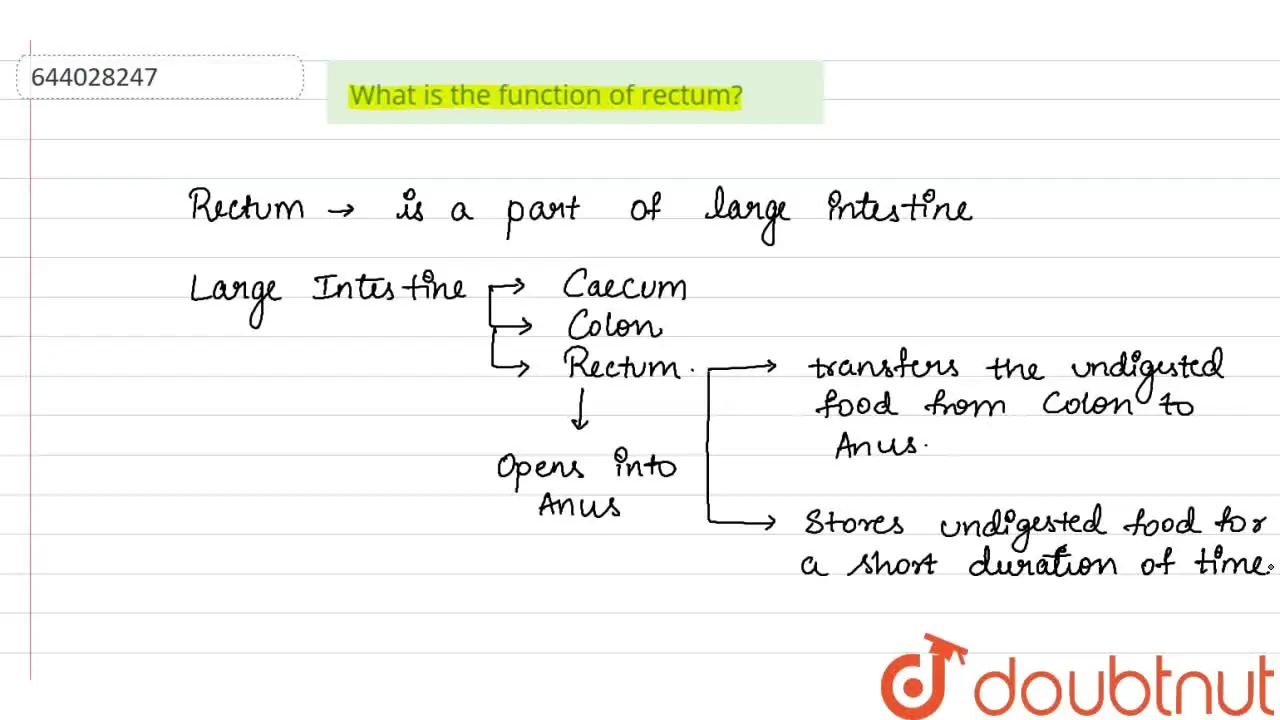 644028247
What is the function of rectum?
Rectum → is a part of large intestine
Large Intestine → Caecum
→ Colon
→ Rectum.
→ transfers the undigested
food from Colon to
Anus.
↓
Opens into
Anus
→ Stores undigested food for
a short duration of time.
doubtnut